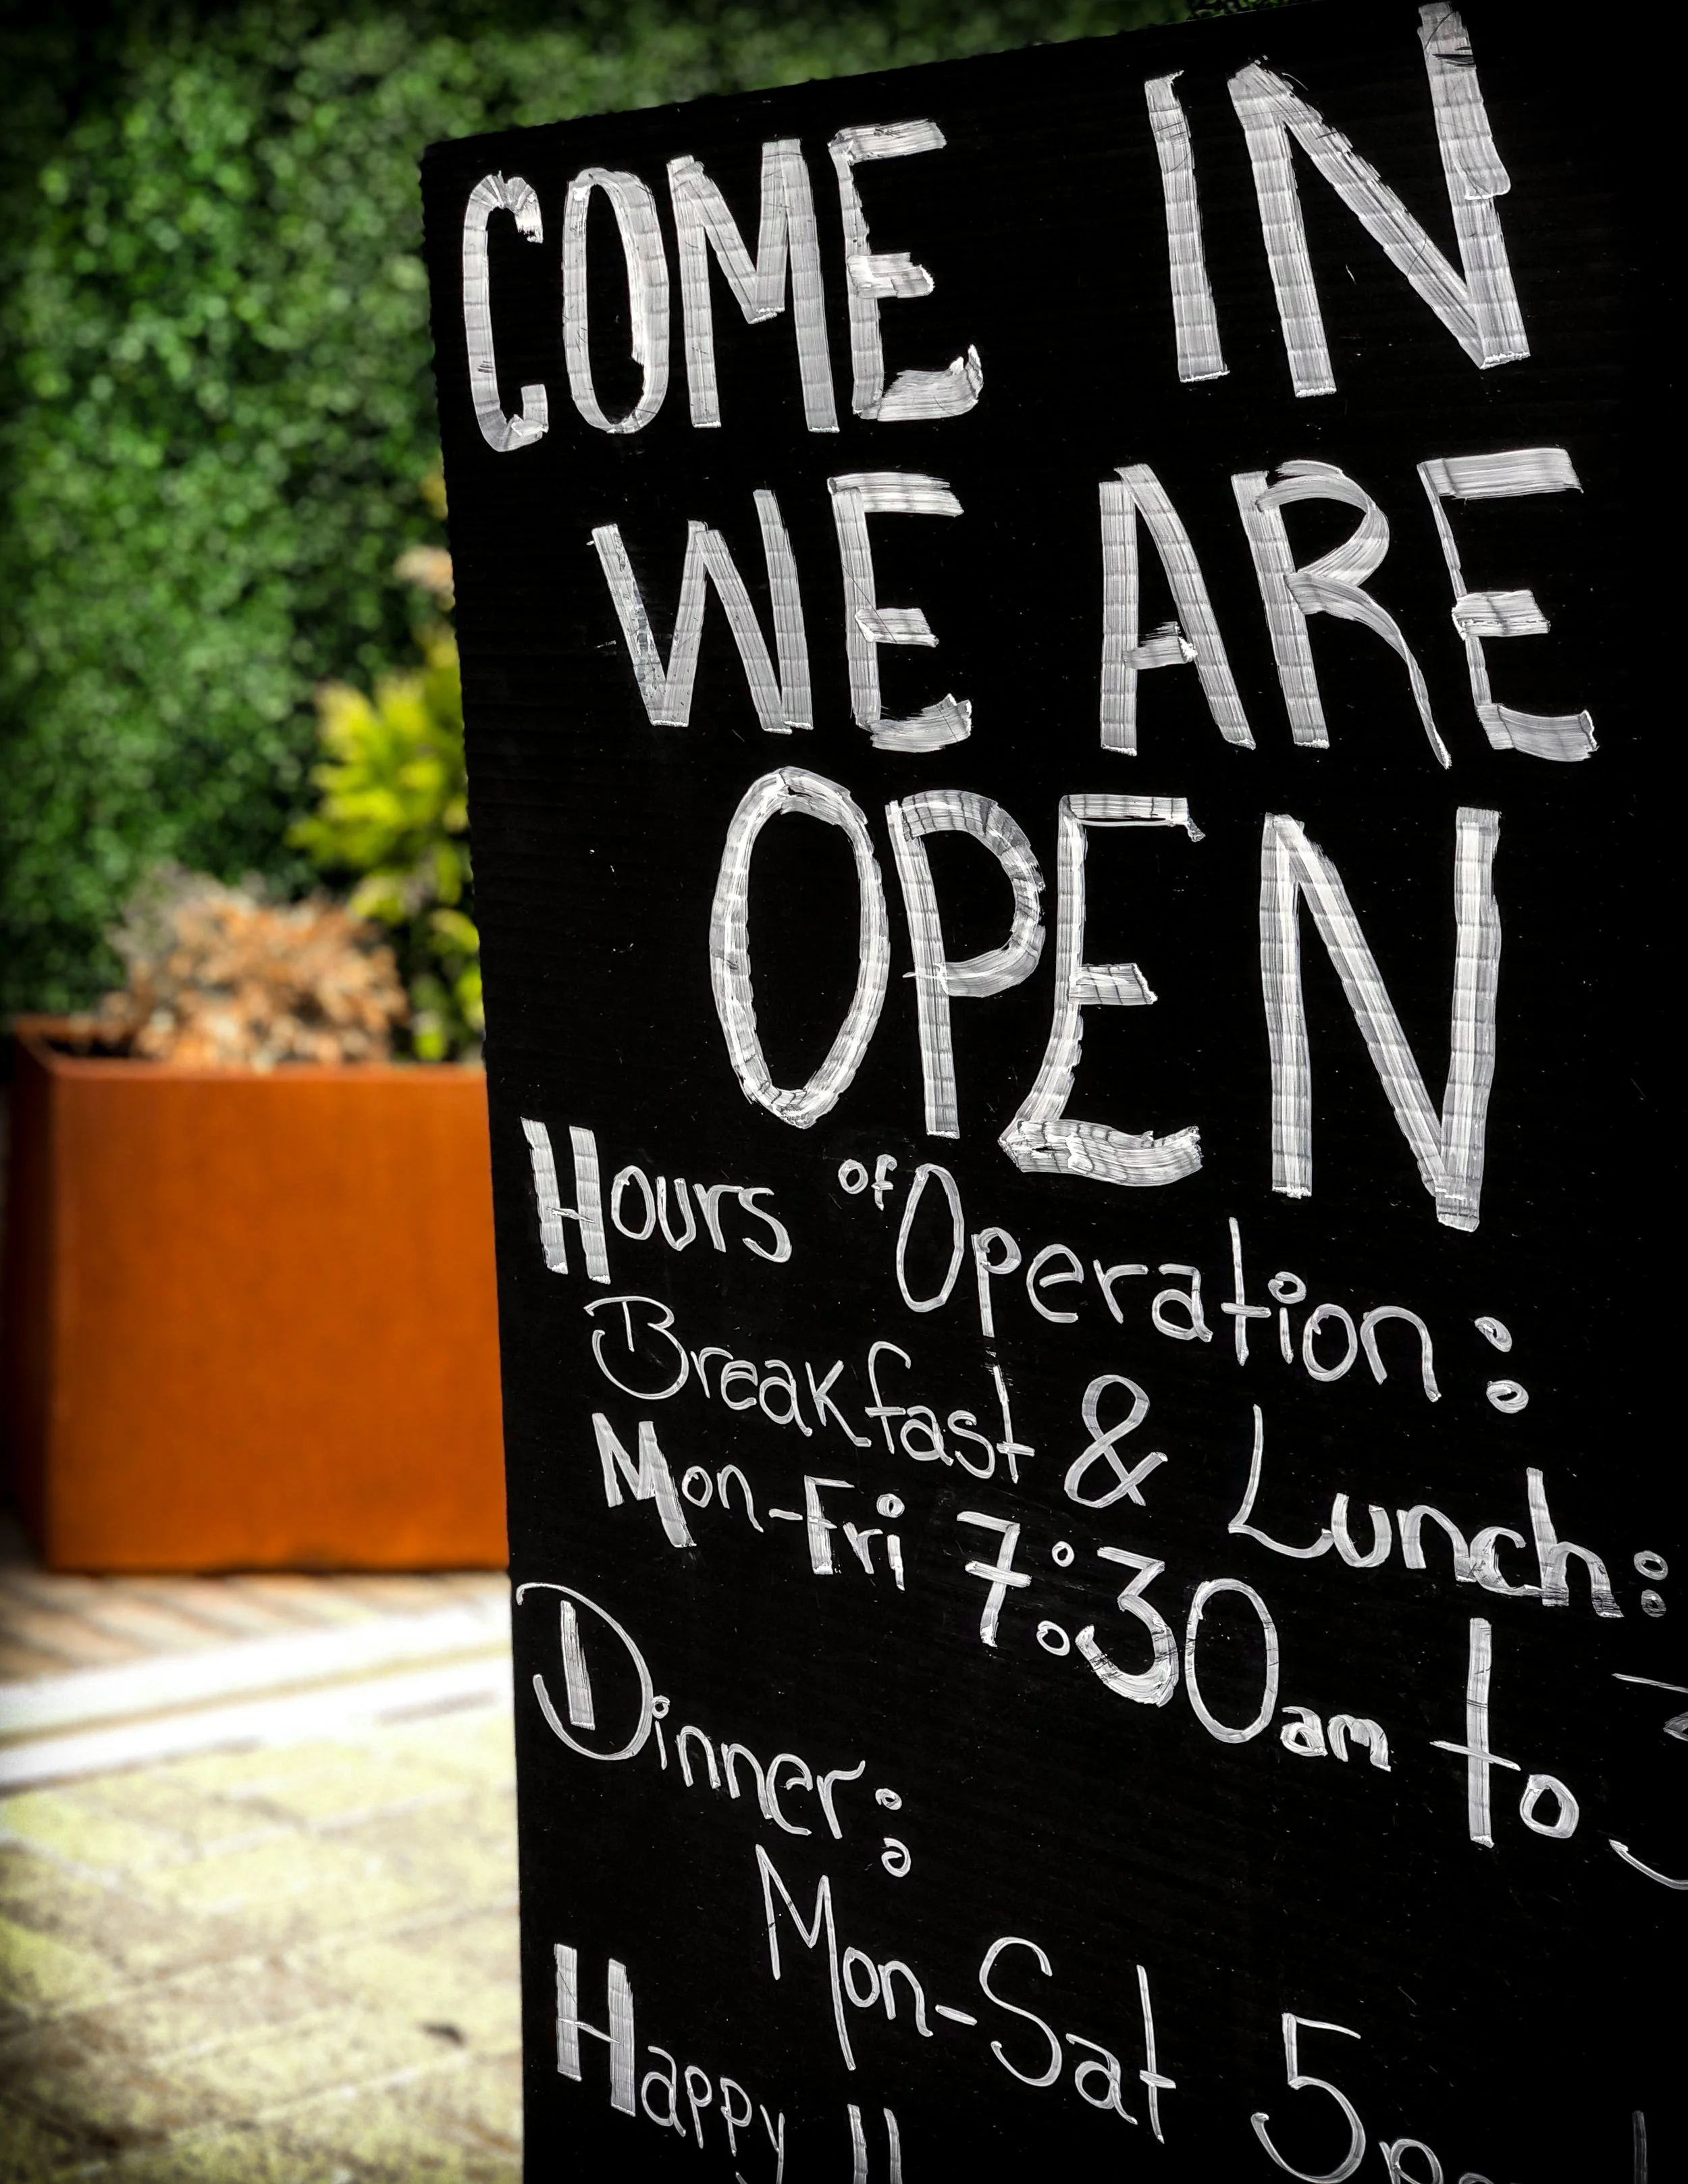 COME IN
WE ARE
OPEN
Hours of Operation:
Breakfast & Lunch:
Mon-Fri 7:30am to
Dinner:
Mon-Sat 5
Happy